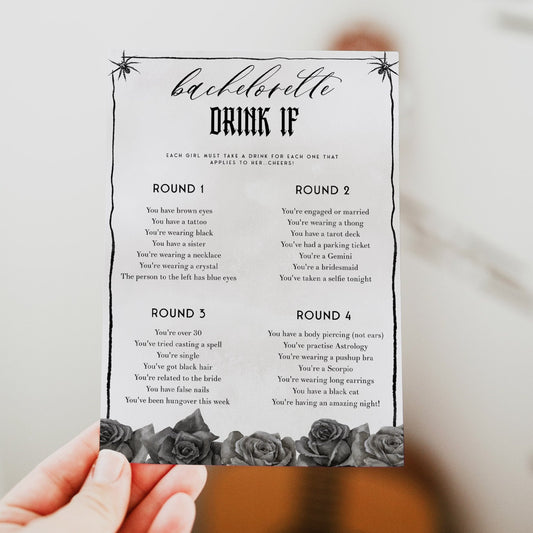 bachelorette
DRINK IF
EACH GIRL MUST TAKE A DRINK FOR EACH ONE THAT
APPLIES TO HER..CHEERS!
ROUND 1
You have brown eyes
You have a tattoo
You're wearing black
You have a sister
You're wearing a necklace
You're wearing a crystal
The person to the left has blue eyes
ROUND 2
You're engaged or married
You're wearing a thong
You have a tarot deck
You've had a parking ticket
You're a Gemini
You're a bridesmaid
You've taken a selfie tonight
ROUND 3
You're over 30
You've tried casting a spell
You're single
You've got black hair
You're related to the bride
You have false nails
You've been hungover this week
ROUND 4
You have a body piercing (not ears)
You've practise Astrology
You're wearing a pushup bra
You're a Scorpio
You're wearing long earrings
You have a black cat
You're having an amazing night!